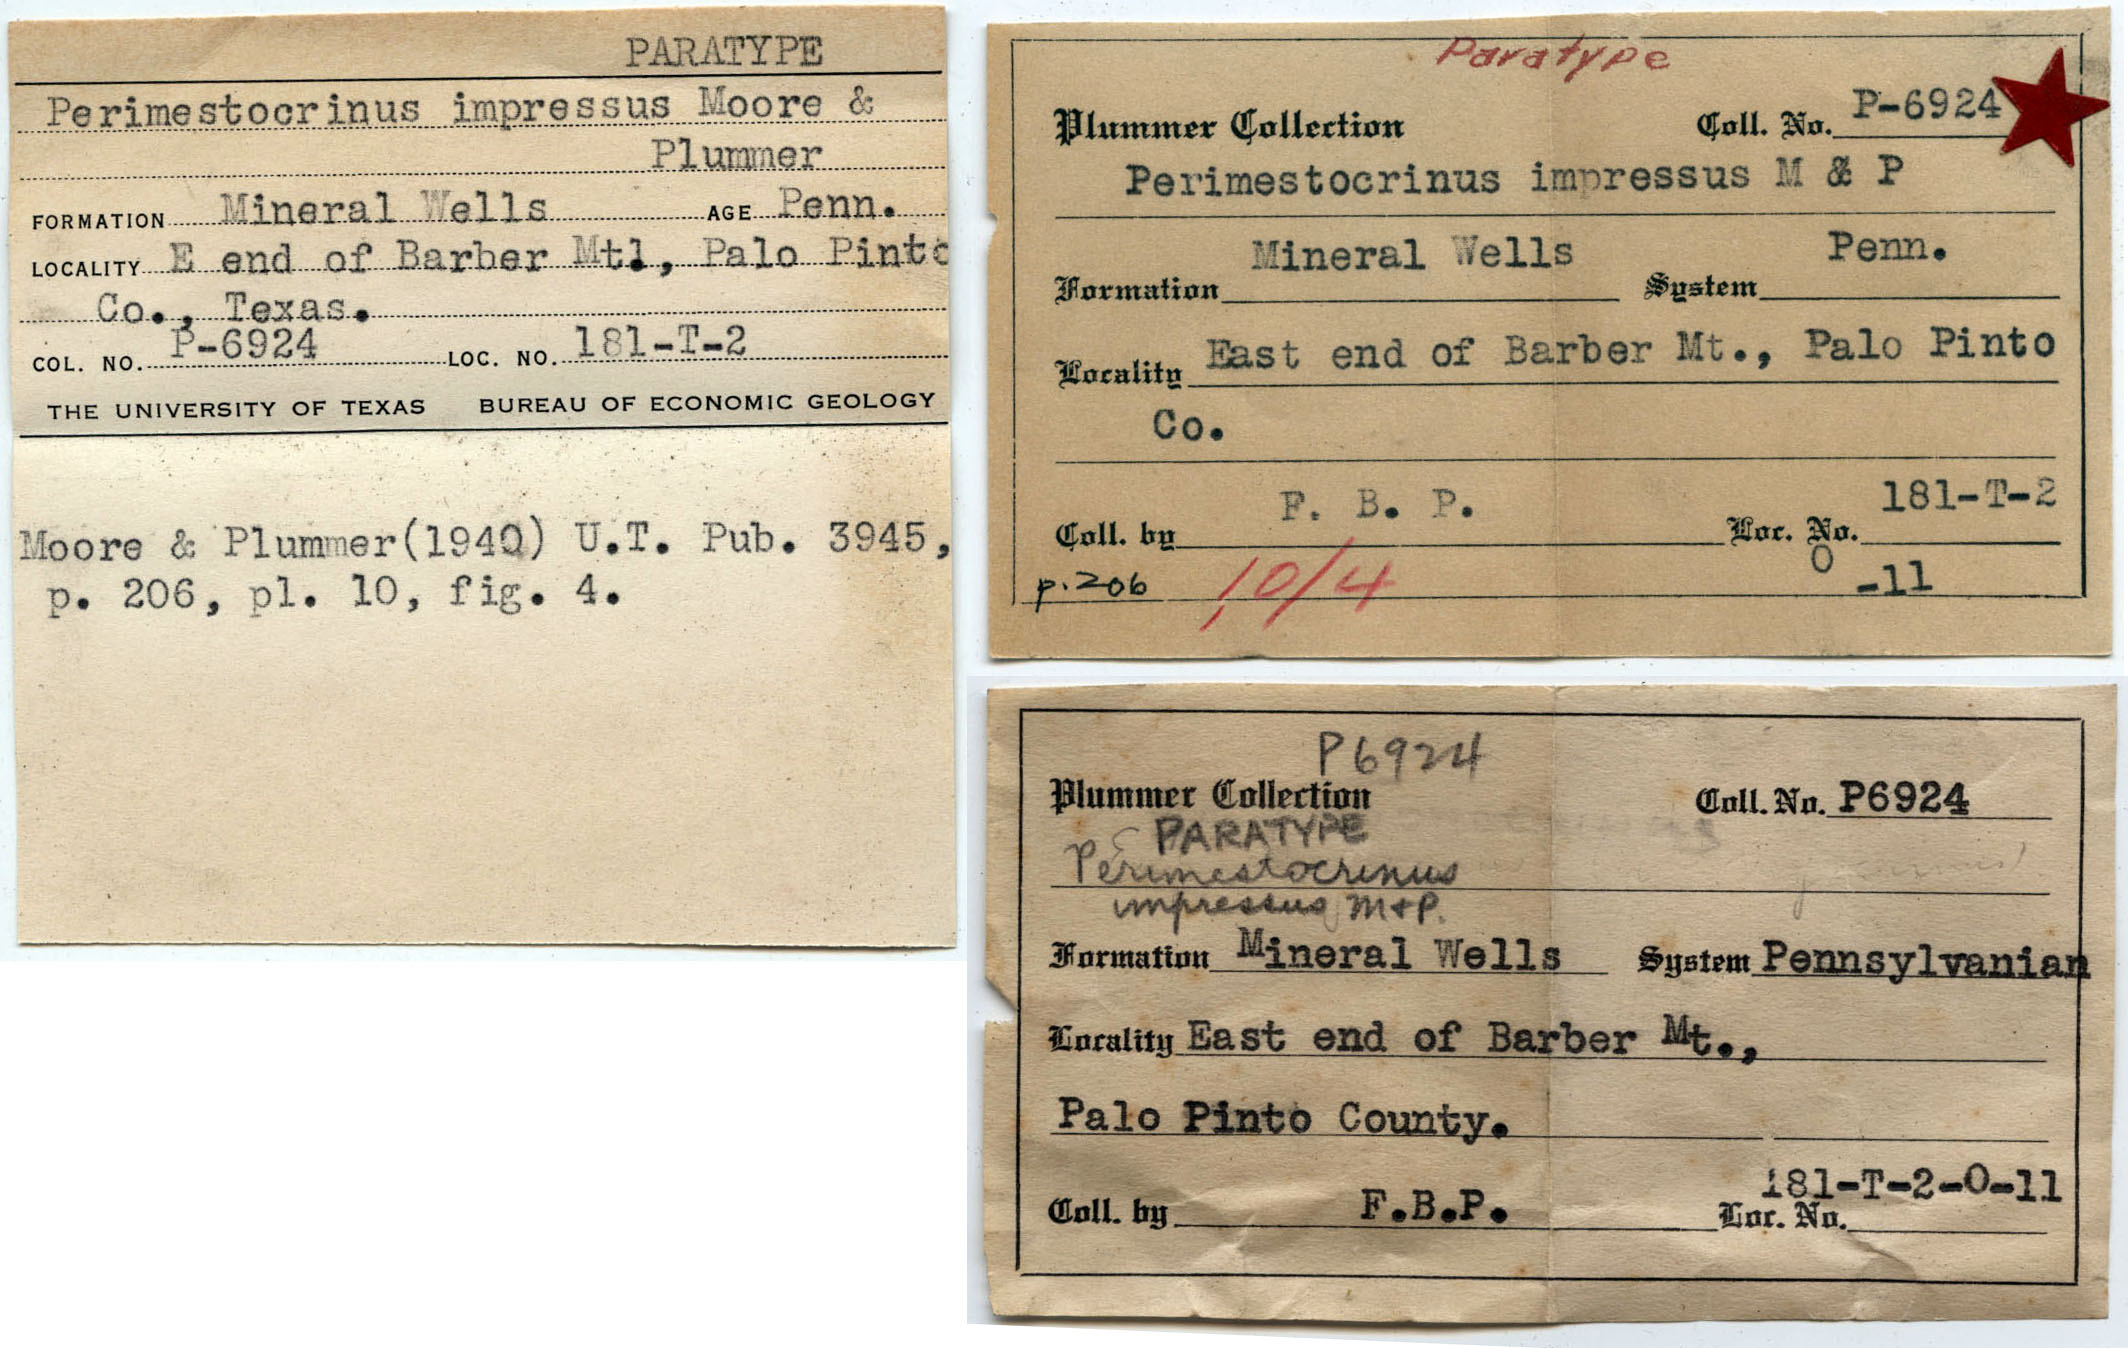 PARATYPE
Perimestocrinus impressus Moore &
Plummer
FORMATION Mineral Wells AGE Penn.
LOCALITY E end of Barber Mtl, Palo Pinto
Co., Texas.
COL. NO. P-6924 LOC. NO. 181-T-2
THE UNIVERSITY OF TEXAS BUREAU OF ECONOMIC GEOLOGY
Moore & Plummer(1940) U.T. Pub. 3945,
p. 206, pl. 10, fig. 4.
Paratype
Plummer Collection Coll. No. P-6924
Perimestocrinus impressus M & P
Formation Mineral Wells System Penn.
Locality East end of Barber Mt., Palo Pinto
Co.
Coll. by F. B. P. Loc. No. 181-T-2
O -11
p.206 10/4
P6924
Plummer Collection Coll. No. P6924
PARATYPE
Perimestocrinus
impressus M+P.
Formation Mineral Wells System Pennsylvanian
Locality East end of Barber Mt.,
Palo Pinto County.
Coll. by F.B.P. Loc. No. 181-T-2-O-11